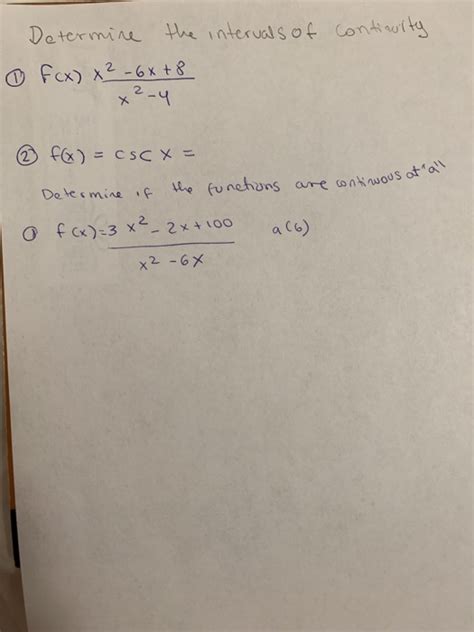 Determine the intervals of continuity
① f(x) x² - 6x + 8
x² - 4
② f(x) = csc x =
Determine if the functions are continuous at "a"
① f(x) = 3x² - 2x + 100 a(6)
x² - 6x